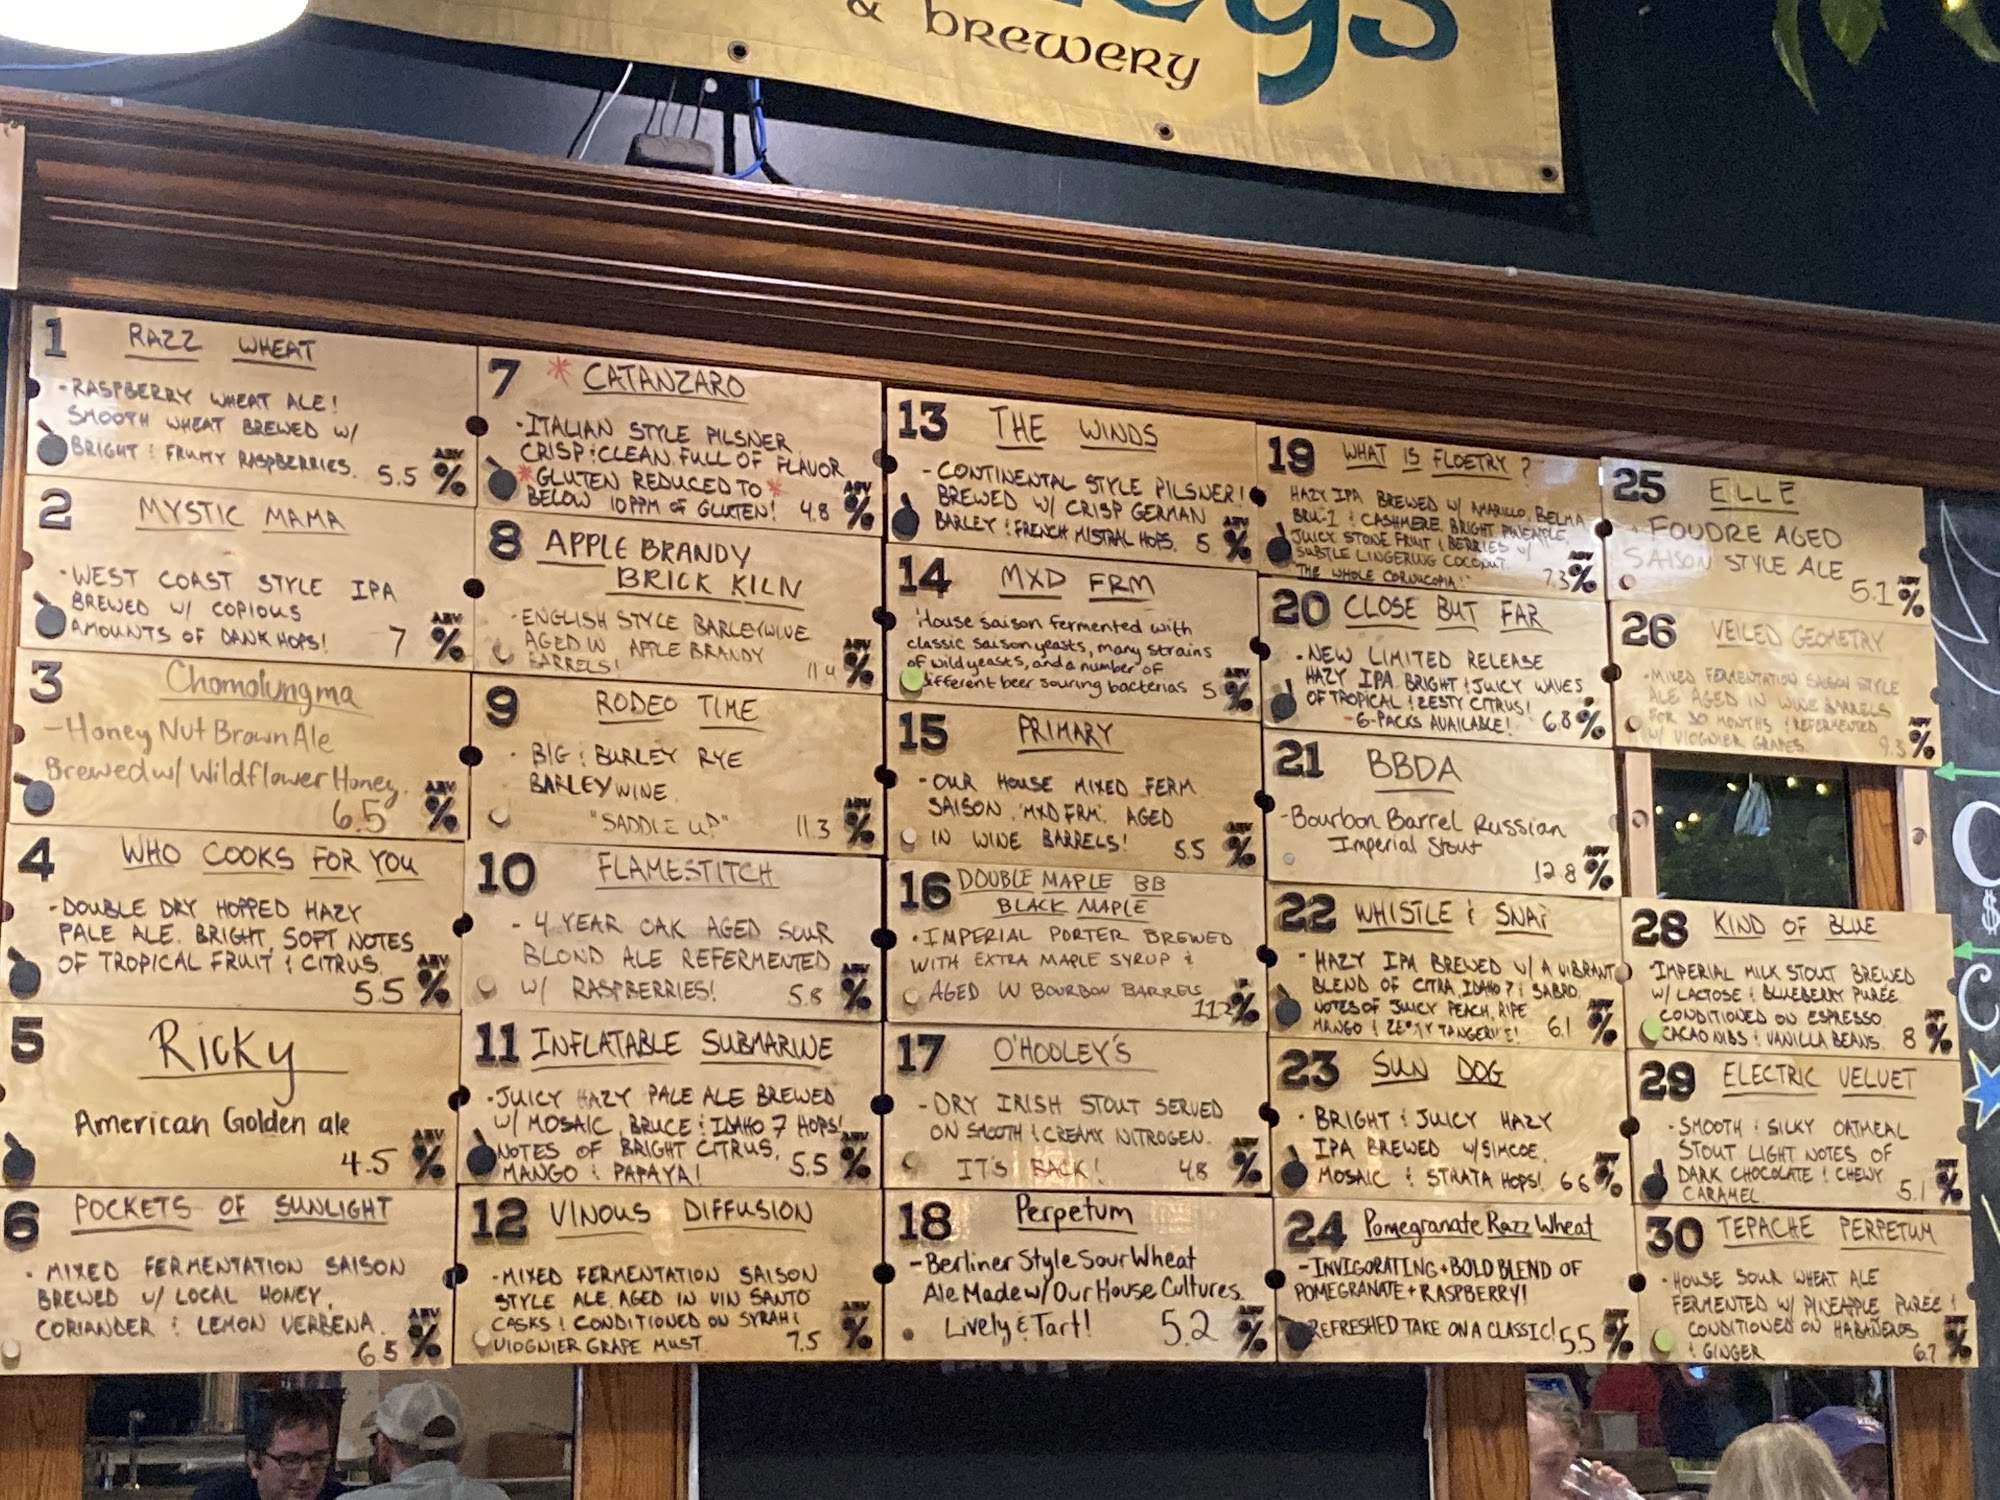 & BREWERY
1 RAZZ WHEAT
-RASPBERRY WHEAT ALE!
SMOOTH WHEAT BREWED W/
BRIGHT & FRUITY RASPBERRIES. 5.5 ABV %
2 MYSTIC MAMA
-WEST COAST STYLE IPA
BREWED W/ COPIOUS
AMOUNTS OF DANK HOPS! 7 ABV %
3 Chomolungma
-Honey Nut Brown Ale
Brewed w/ Wildflower Honey.
6.5 ABV %
4 WHO COOKS FOR YOU
-DOUBLE DRY HOPPED HAZY
PALE ALE. BRIGHT, SOFT NOTES
OF TROPICAL FRUIT & CITRUS.
5.5 ABV %
5 RICKY
American Golden ale
4.5 ABV %
6 POCKETS OF SUNLIGHT
- MIXED FERMENTATION SAISON
BREWED W/ LOCAL HONEY,
CORIANDER & LEMON VERBENA.
6.5 ABV %
7 *CATANZARO
-ITALIAN STYLE PILSNER
CRISP & CLEAN. FULL OF FLAVOR
*GLUTEN REDUCED TO*
BELOW 10PPM OF GLUTEN! 4.8 ABV %
8 APPLE BRANDY
BRICK KILN
-ENGLISH STYLE BARLEYWINE
AGED IN APPLE BRANDY
BARRELS! 11.4 ABV %
9 RODEO TIME
- BIG & BURLEY RYE
BARLEYWINE.
"SADDLE UP" 11.3 ABV %
10 FLAMESTITCH
- 4 YEAR OAK AGED SOUR
BLOND ALE REFERMENTED
W/ RASPBERRIES! 5.8 ABV %
11 INFLATABLE SUBMARINE
-JUICY HAZY PALE ALE BREWED
W/ MOSAIC, BRUCE & IDAHO 7 HOPS!
NOTES OF BRIGHT CITRUS,
MANGO & PAPAYA! 5.5 ABV %
12 VINOUS DIFFUSION
-MIXED FERMENTATION SAISON
STYLE ALE. AGED IN VIN SANTO
CASKS & CONDITIONED ON SYRAH &
VIOGNIER GRAPE MUST 7.5 ABV %
13 THE WINDS
-CONTINENTAL STYLE PILSNER!
BREWED W/ CRISP GERMAN
BARLEY & FRENCH MISTRAL HOPS. 5 ABV %
14 MXD FRM
House saison fermented with
classic saison yeasts, many strains
of wild yeasts, and a number of
different beer souring bacterias 5 ABV %
15 PRIMARY
-OUR HOUSE MIXED FERM
SAISON, 'MXD FRM', AGED
IN WINE BARRELS! 5.5 ABV %
16 DOUBLE MAPLE BB
BLACK MAPLE
-IMPERIAL PORTER BREWED
WITH EXTRA MAPLE SYRUP &
AGED IN BOURBON BARRELS
11.2 %
17 O'HOOLEY'S
-DRY IRISH STOUT SERVED
ON SMOOTH & CREAMY NITROGEN.
IT'S BACK! 4.8 ABV %
18 Perpetum
-Berliner Style Sour Wheat
Ale Made w/ Our House Cultures.
Lively & Tart! 5.2 ABV %
19 WHAT IS FLOETRY?
HAZY IPA BREWED W/ AMARILLO, BELMA,
BRU-1 & CASHMERE. BRIGHT PINEAPPLE,
JUICY STONE FRUIT & BERRIES W/
SUBTLE LINGERING COCONUT.
THE WHOLE CORNUCOPIA! 7.3 ABV %
20 CLOSE BUT FAR
-NEW LIMITED RELEASE
HAZY IPA. BRIGHT & JUICY WAVES
OF TROPICAL & ZESTY CITRUS!
-6-PACKS AVAILABLE! 6.8 %
21 BBDA
-Bourbon Barrel Russian
Imperial Stout
12.8 ABV %
22 WHISTLE & SNAP
- HAZY IPA BREWED W/ A VIBRANT
BLEND OF CITRA, IDAHO 7 & SABRO.
NOTES OF JUICY PEACH, RIPE
MANGO & ZESTY TANGERINE! 6.1 ABV %
23 SUN DOG
- BRIGHT & JUICY HAZY
IPA BREWED W/ SIMCOE,
MOSAIC & STRATA HOPS! 6.6 ABV %
24 Pomegranate Razz Wheat
-INVIGORATING + BOLD BLEND OF
POMEGRANATE + RASPBERRY!
REFRESHED TAKE ON A CLASSIC! 5.5 ABV %
25 ELLE
- FOUDRE AGED
SAISON STYLE ALE
5.1 ABV %
26 VEILED GEOMETRY
-MIXED FERMENTATION SAISON STYLE
ALE AGED IN WINE BARRELS
FOR 30 MONTHS & REFERMENTED
W/ VIOGNIER GRAPES. 9.3 ABV %
28 KIND OF BLUE
-IMPERIAL MILK STOUT BREWED
W/ LACTOSE & BLUEBERRY PUREE.
CONDITIONED ON ESPRESSO
CACAO NIBS & VANILLA BEANS. 8 ABV %
29 ELECTRIC VELVET
-SMOOTH & SILKY OATMEAL
STOUT LIGHT NOTES OF
DARK CHOCOLATE & CHEWY
CARAMEL. 5.1 ABV %
30 TEPACHE PERPETUM
-HOUSE SOUR WHEAT ALE
FERMENTED W/ PINEAPPLE PUREE &
CONDITIONED ON HABANEROS
& GINGER 6.7 ABV %